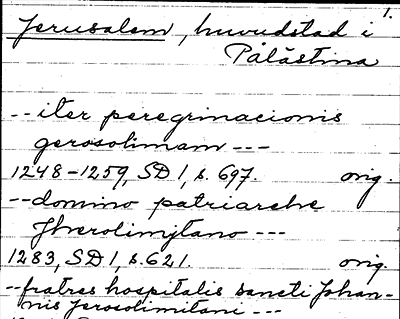 1.
Jerusalem, huvudstad i
Palästina
-- iter peregrinacionis
gerosolimam ---
1248-1259, SD 1, s. 697. orig.
-- domino patriarche
Jherolimytano ---
1283, SD 1, s. 621. orig.
-- fratres hospitalis sancti Johan-
nis Jerosolimitani ---